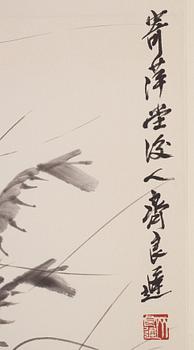 寄萍堂后人齊良遲